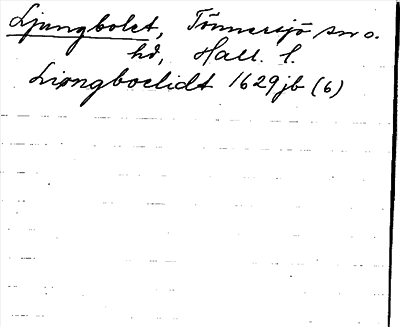 Ljungbolet, Tönnersjö sn o.
hd, Hall. l.
Liongboelidt 1629 jb (6)